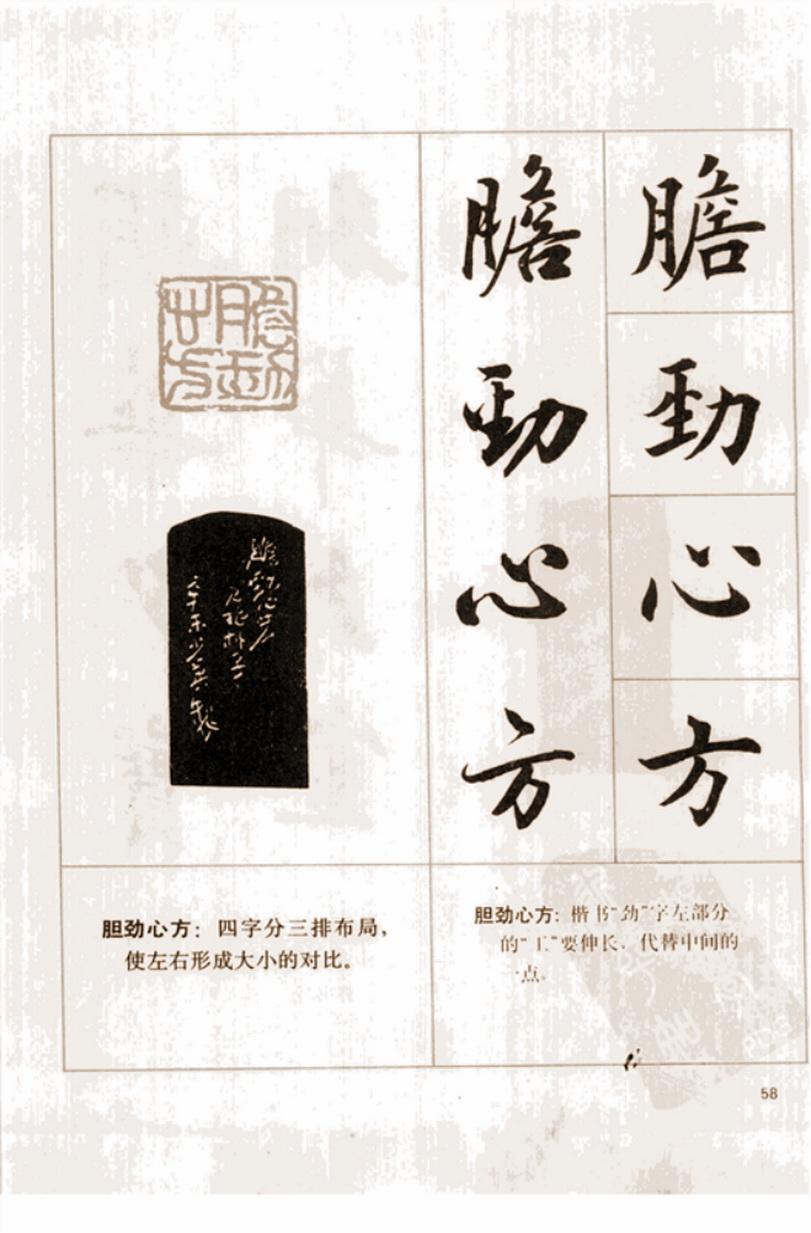 膽
勁
心
方
膽
勁
心
方
胆劲心方：楷书“劲”字左部分
的“工”要伸长，代替中间的
一点。
膽勁
心方
膽勁心方
辛未
胆劲心方：四字分三排布局，
使左右形成大小的对比。
58